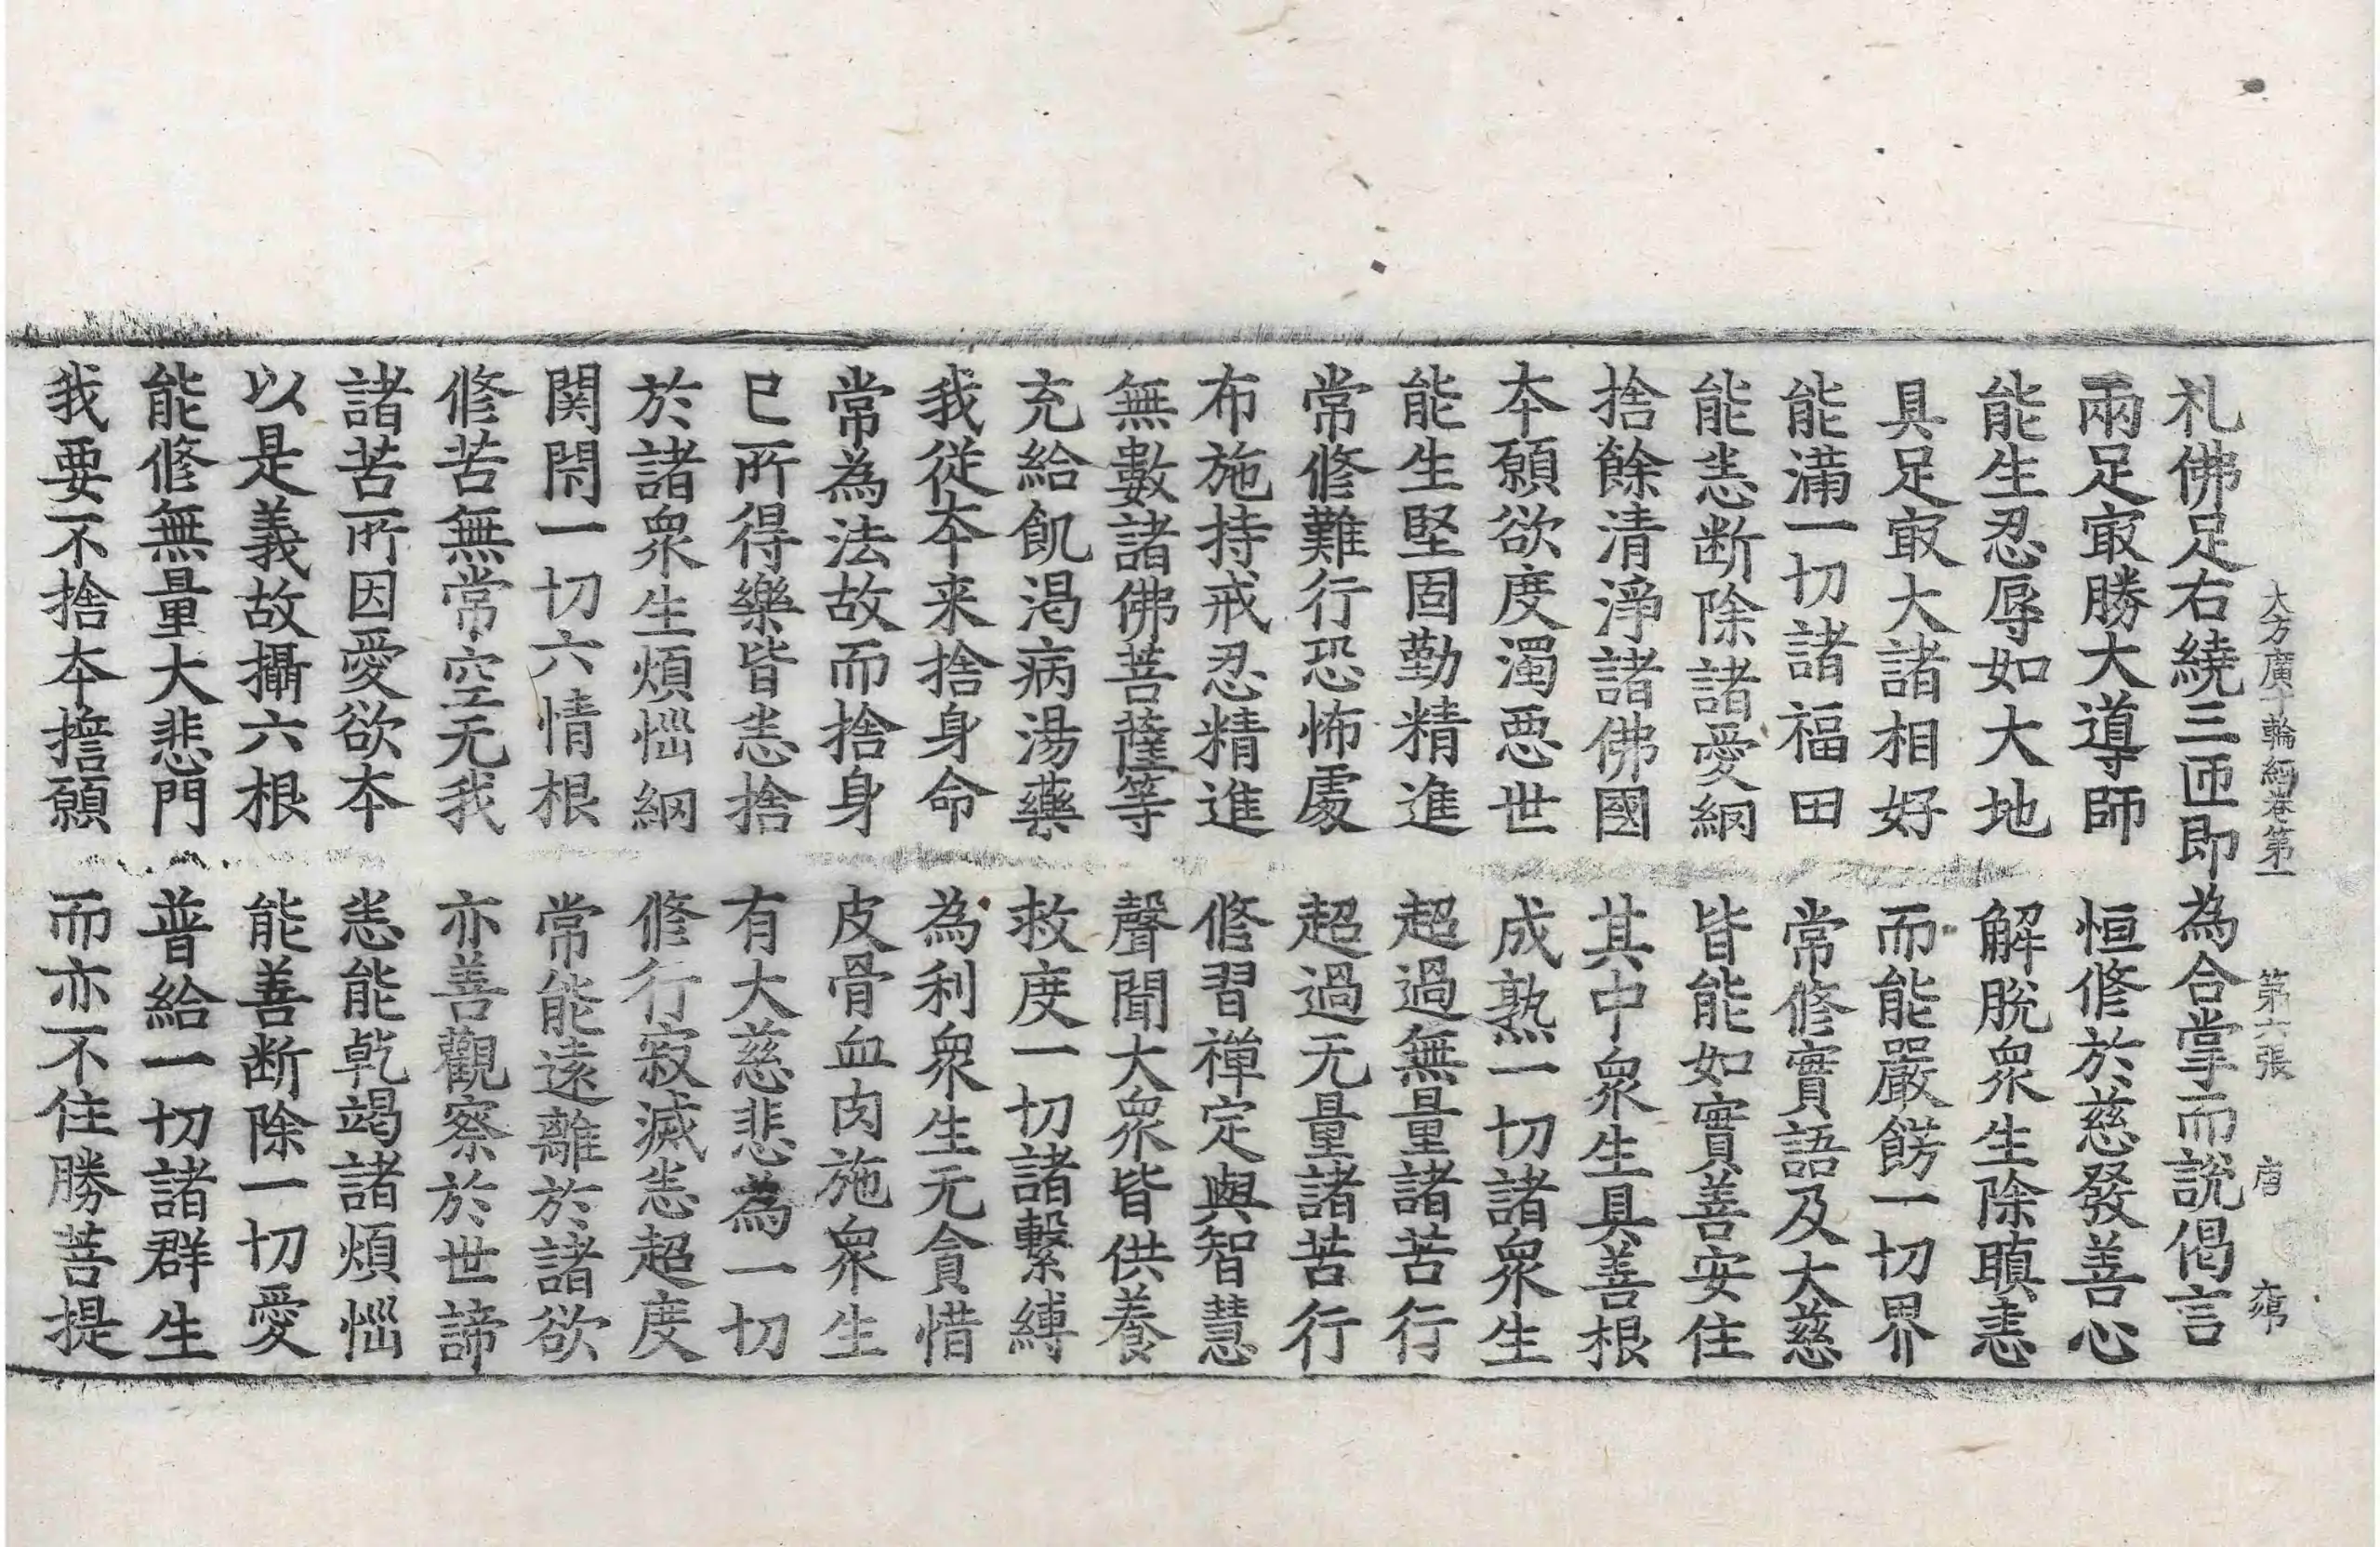 大方廣十輪經卷第一 第六張 唐
礼佛足右繞三匝即為合掌而說偈言
兩足㝡勝大導師 恒修於慈發善心
能生忍辱如大地 解脫衆生除瞋恚
具足㝡大諸相好 而能嚴餝一切界
能滿一切諸福田 常修實語及大慈
能恙断除諸愛網 皆能如實善安住
捨餘清淨諸佛國 其中衆生具善根
本願欲度濁惡世 成熟一切諸衆生
能生堅固勤精進 超過無量諸苦行
常修難行恐怖處 超過无量諸苦行
布施持戒忍精進 修習禪定與智慧
無數諸佛菩薩等 聲聞大衆皆供養
充給飢渴病湯藥 救度一切諸繫縛
我從本来捨身命 為利衆生无貪惜
常為法故而捨身 皮骨血肉施衆生
已所得樂皆恙捨 有大慈悲為一切
於諸衆生煩惱網 修行寂滅恙超度
関閇一切六情根 常能遠離於諸欲
修苦無常空无我 亦善觀察於世諦
諸苦所因愛欲本 恙能乾竭諸煩惱
以是義故攝六根 能善断除一切愛
能修無量大悲門 普給一切諸群生
我要不捨本擔願 而亦不住勝菩提